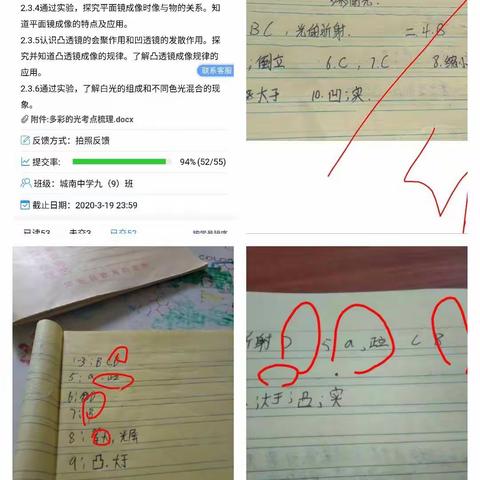 2.3.4通过实验，探究平面镜成像时像与物的关系。知
道平面镜成像的特点及应用。
2.3.5认识凸透镜的会聚作用和凹透镜的发散作用。探
究并知道凸透镜成像的规律。了解凸透镜成像规律的
应用。
联系客服
2.3.6通过实验，了解白光的组成和不同色光混合的现
象。
附件:多彩的光考点梳理.docx
反馈方式：拍照反馈
提交率： 94%(52/55)
班级：城南中学九（9）班
截止日期：2020-3-19 23:59
已读53 未交3 已交52
BC，光的折射. 二 4.B
，倒立 6.C，7.C 8.缩小
大于 10.凹；实.
1-3：B C
5：a
6：
7：
8： ，光屏
9：凸、大于
折射 D 5 a，正立 C B
大于；凸；实